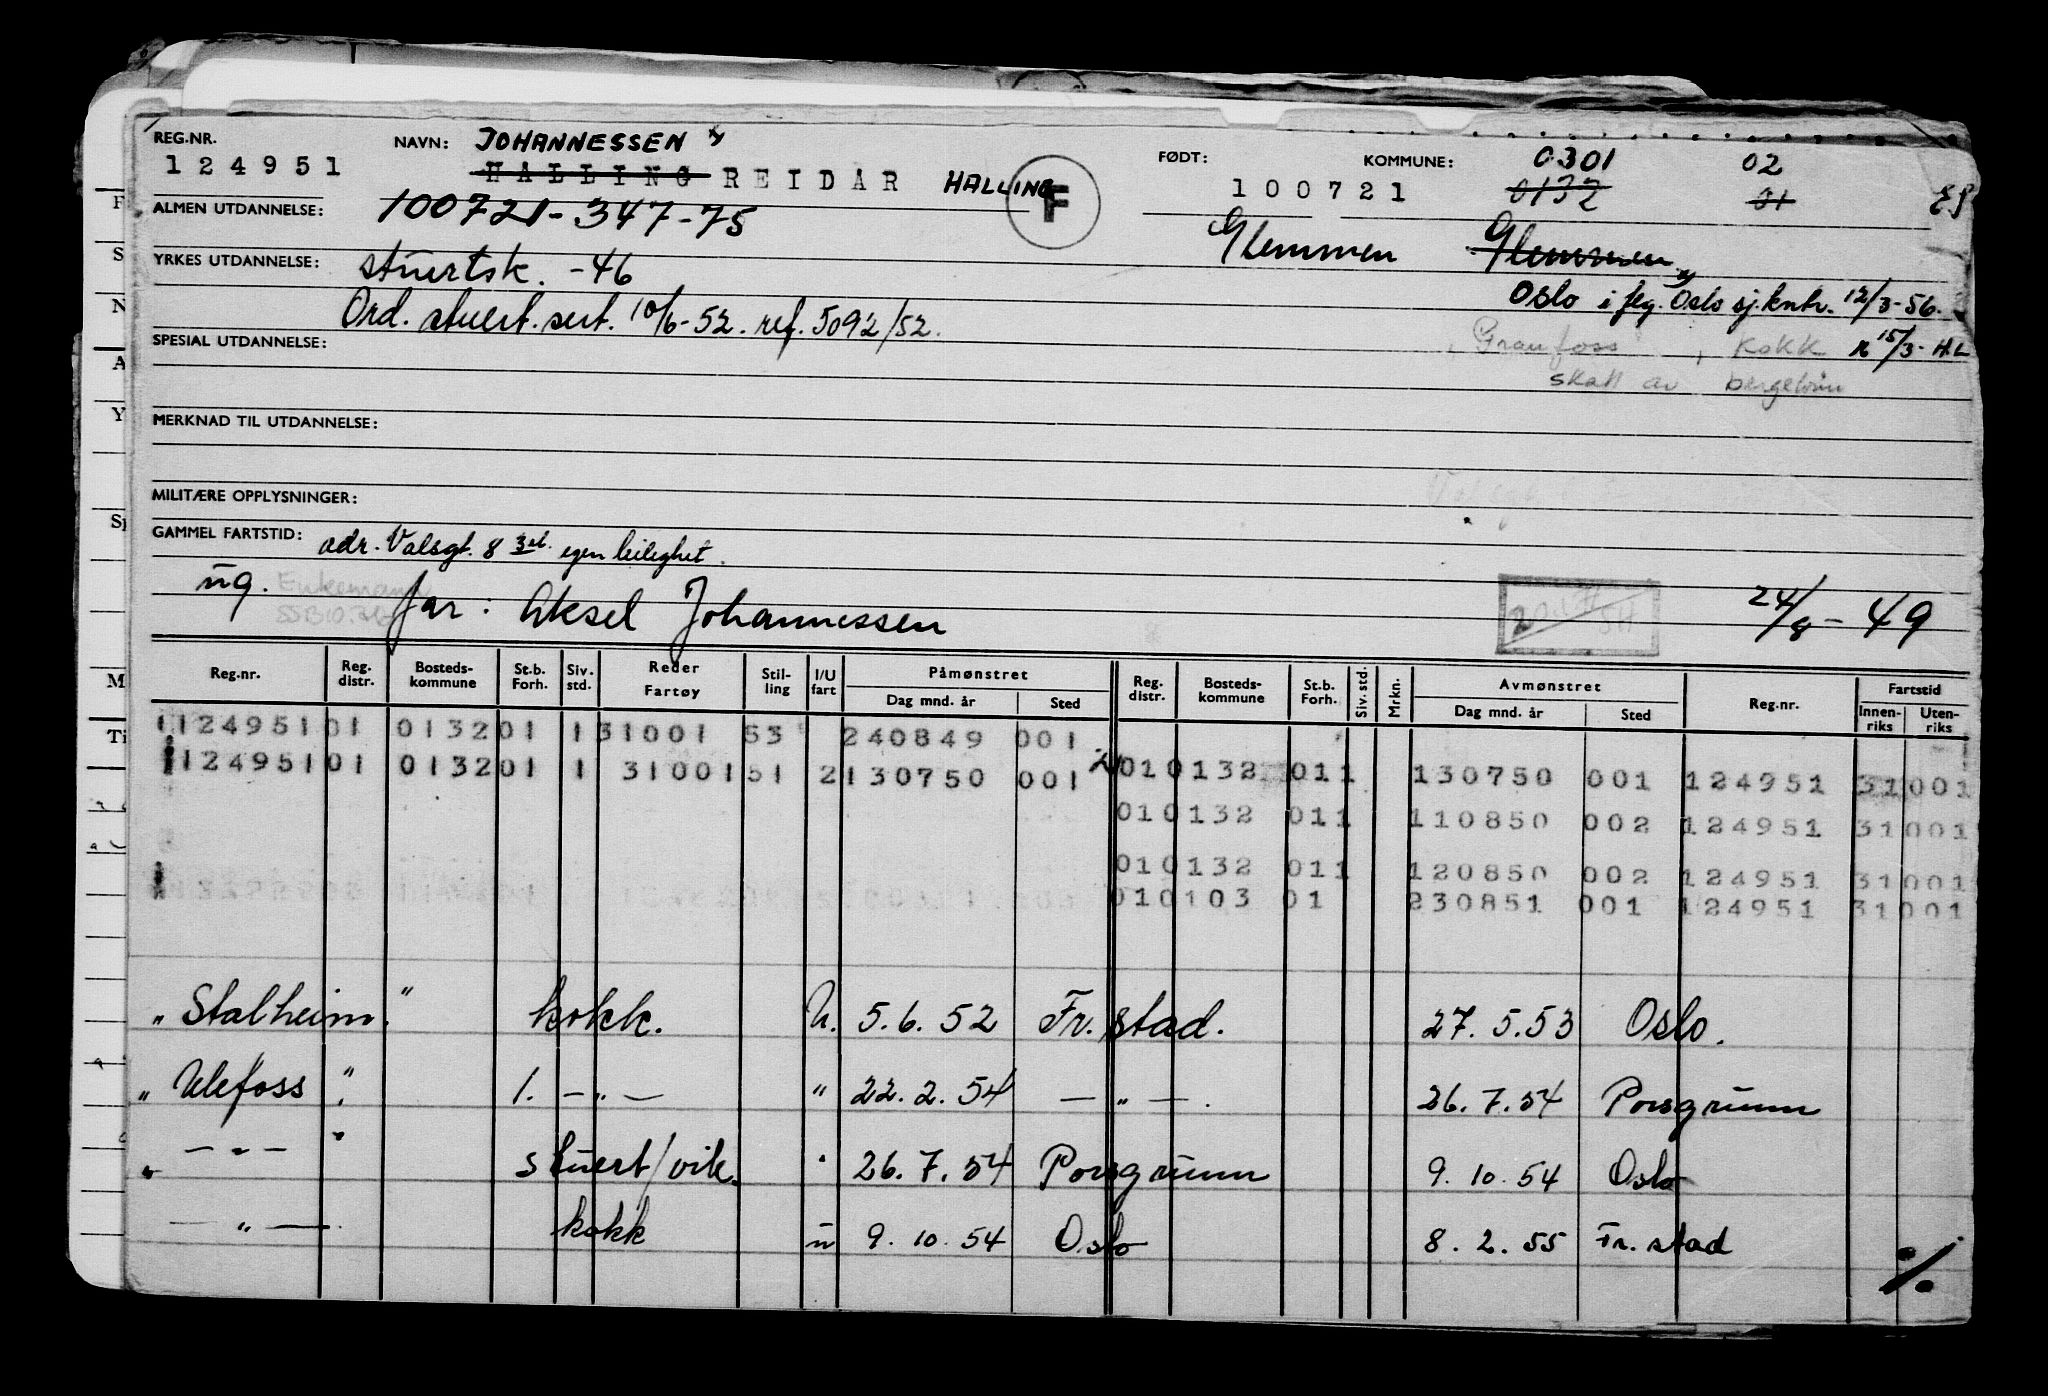 REG.NR. NAVN: JOHANNESSEN FØDT: KOMMUNE: 0301 02
124951 HALLING REIDAR HALLING F 100721 0132 01
ALMEN UTDANNELSE: 100721-347-75 Glemmen Glemmen
YRKES UTDANNELSE: stuertsk. -46 Oslo i flg. Oslo sj.kntr. 12/3-56.
Ord. stuert. sert. 10/6-52. ref. 5092/52.
SPESIAL UTDANNELSE: Granfoss, kokk 15/3- HL
skatt av
MERKNAD TIL UTDANNELSE:
MILITÆRE OPPLYSNINGER:
GAMMEL FARTSTID: adr. Valsgt. 8 egen leilighet.
ug. Enkemann far: Aksel Johannessen 24/8-49
Reg.nr. Reg. distr. Bosteds-kommune St.b. Forh. Siv. std. Reder Fartøy Stil-ling I/U fart Påmønstret Dag mnd. år Sted Reg. distr. Bosteds-kommune St.b. Forh. Siv. std. Mrkn. Avmønstret Dag mnd. år Sted Reg.nr. Fartstid Innen-riks Uten-riks
1124951 01 0132 01 1 31001 53 240849 001
1124951 01 0132 01 1 31001 51 2 130750 001 010132 011 130750 001 124951 31 001
010132 011 110850 002 124951 31 001
010132 011 120850 002 124951 31 001
010103 01 230851 001 124951 31 001
"Stalheim" kokk. U. 5.6.52 Fr.stad. 27.5.53 Oslo.
"Ulefoss" 1. —"— " 22.2.54 —"—. 26.7.54 Porsgrunn
"—"—" stuert/vik. " 26.7.54 Porsgrunn 9.10.54 Oslo
—"— kokk u 9.10.54 Oslo 8.2.55 Fr.stad
./.